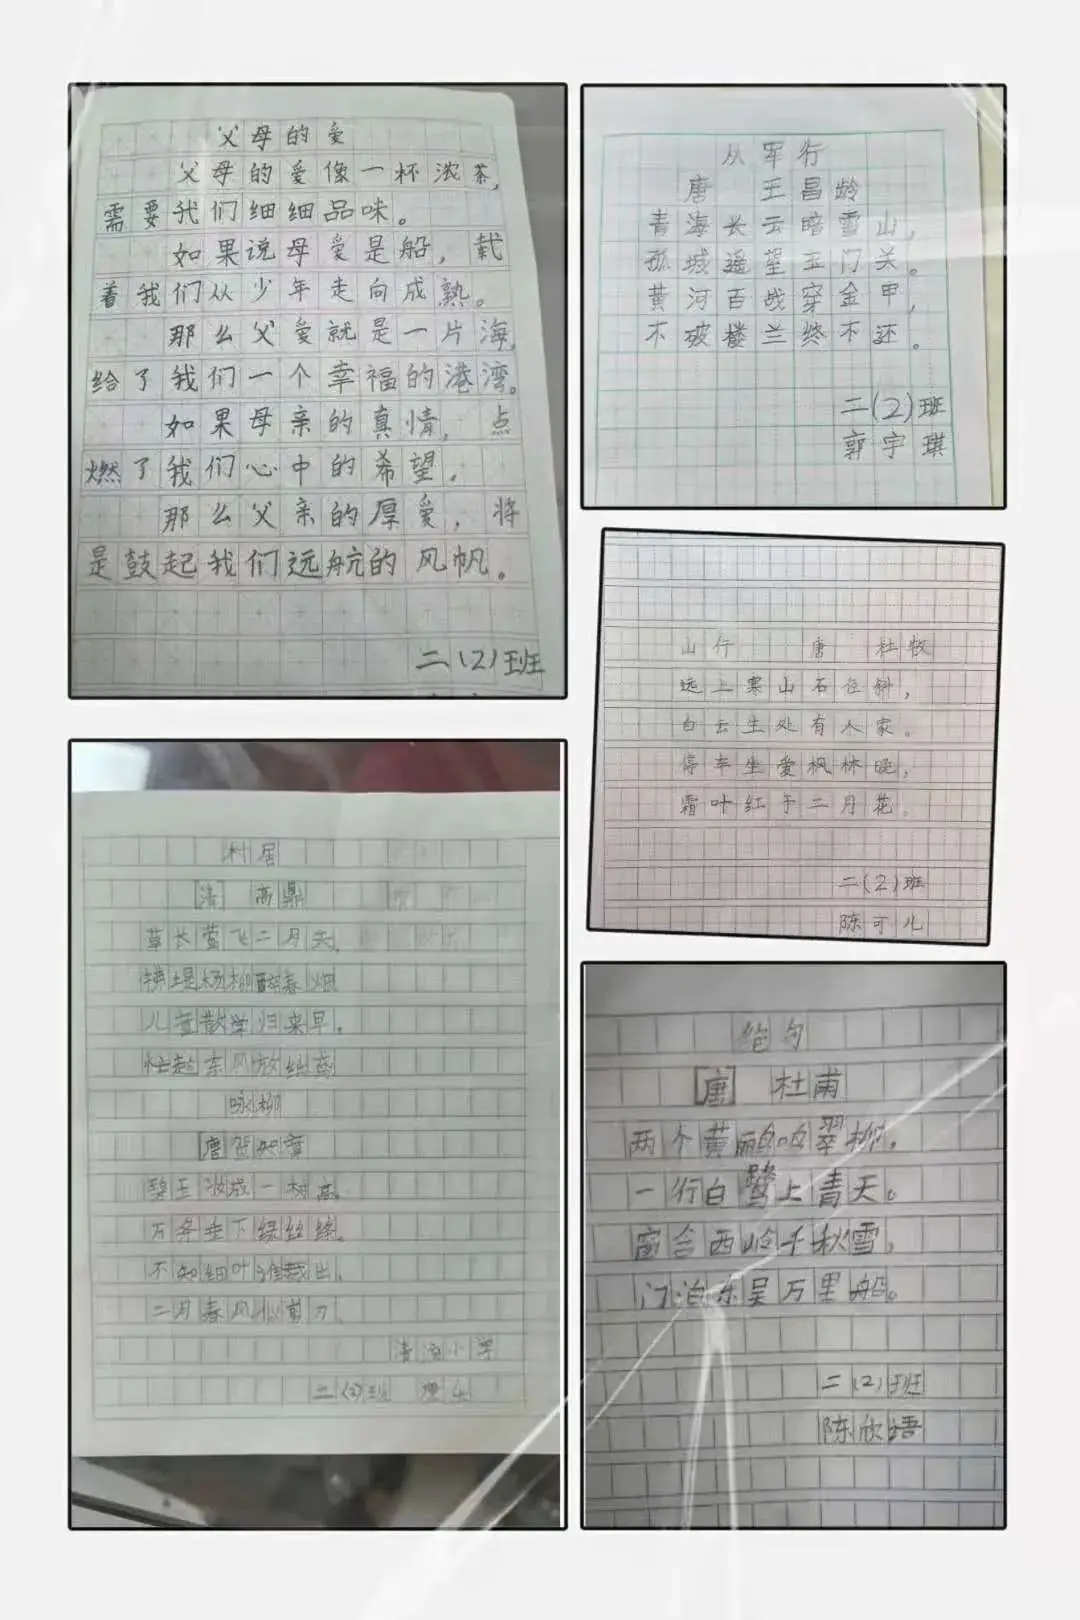 父母的爱
父母的爱像一杯浓茶,
需要我们细细品味。
如果说母爱是船，载
着我们从少年走向成熟。
那么父爱就是一片海,
给了我们一个幸福的港湾。
如果母亲的真情，点
燃了我们心中的希望。
那么父亲的厚爱，将
是鼓起我们远航的风帆。
二(2)班
从军行
唐 王昌龄
青海长云暗雪山,
孤城遥望玉门关。
黄河百战穿金甲,
不破楼兰终不还。
二(2)班
郭宇琪
山行 唐 杜牧
远上寒山石径斜,
白云生处有人家。
停车坐爱枫林晚,
霜叶红于二月花。
二(2)班
陈可儿
村居
[清] 高鼎
草长莺飞二月天,
拂堤杨柳醉春烟
儿童散学归来早。
忙趁东风放纸鸢
咏柳
[唐]贺知章
碧玉妆成一树高。
万条垂下绿丝绦。
不知细叶谁裁出,
二月春风似剪刀。
小学
二(2)班
绝句
[唐] 杜甫
两个黄鹂鸣翠柳,
一行白鹭上青天。
窗含西岭千秋雪,
门泊东吴万里船。
二(2)班
陈欣